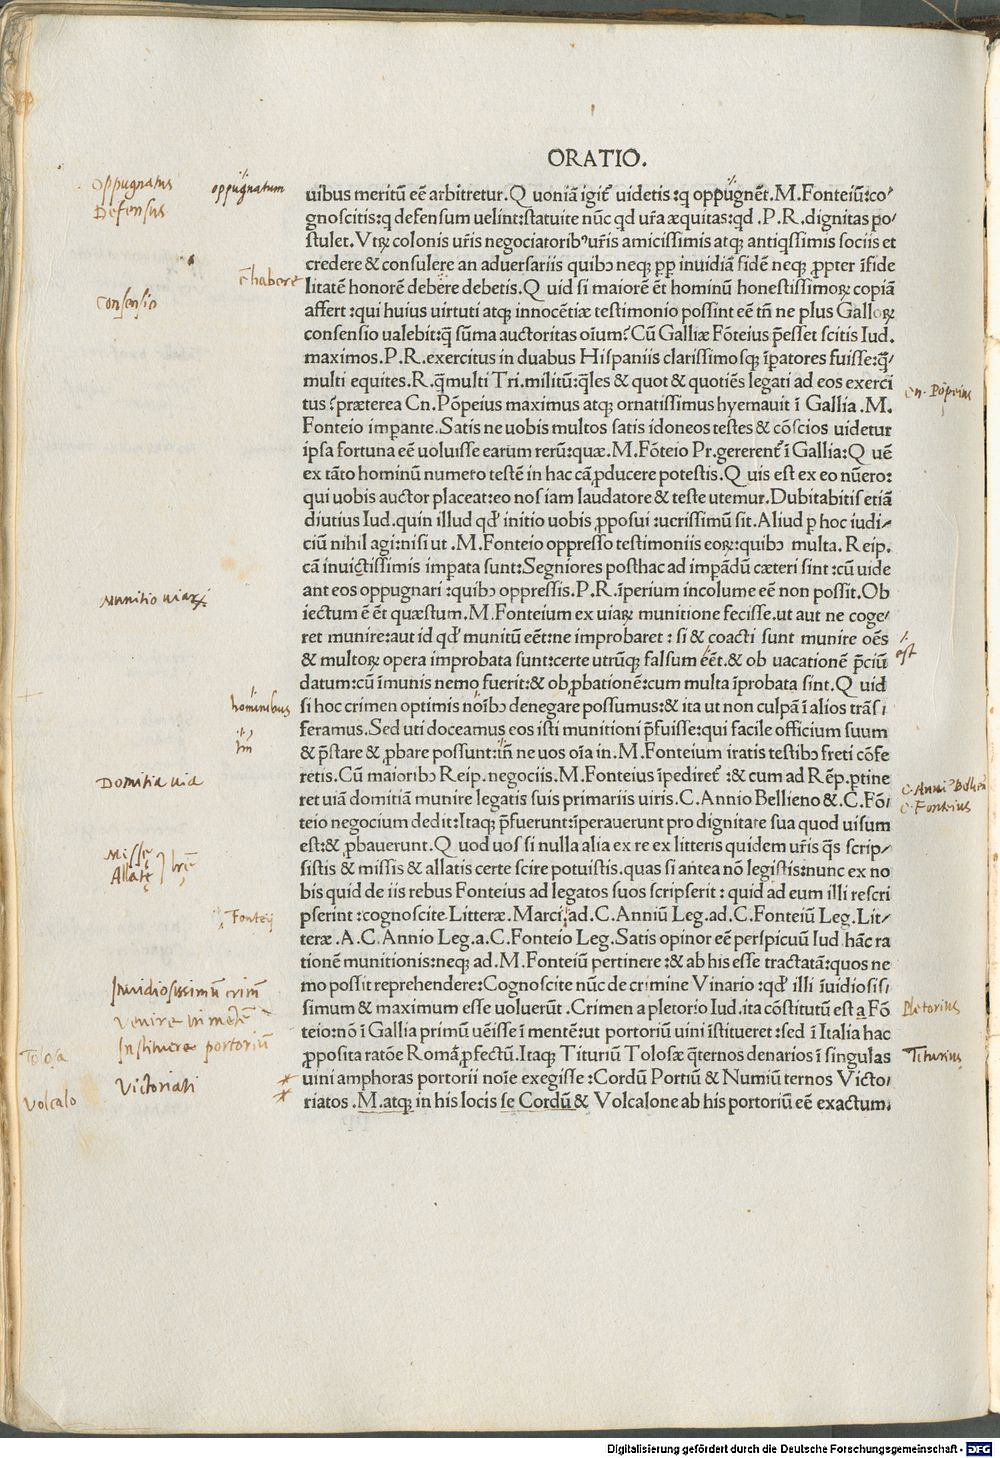 ORATIO.
uibus meritū eē arbitretur. Q uoniā igit᷑ uidetis :q oppugnēt. M. Fonteiū: co-
gnoscitis: q defensum uelint: statuite nūc qd ur̄a æquitas: qd . P. R. dignitas po-
stulet. Vtꝝ colonis ur̄is negociatoribꝰ ur̄is amicissimis atqꝫ antiqssimis sociis et
credere & consulere an aduersariis quibꝫ neqꝫ ꝓp inuidiā fidē neqꝫ ꝓpter īfide
litatē honorē debēre debetis. Q uid si maiorē ēt hominū honestissimoꝝ copiā
affert :qui huius uirtuti atqꝫ innocētiæ testimonio possint eē tn̄ ne plus Galloꝝ
consensio ualebit: q̄ sūma auctoritas oīum? Cū Galliæ Fōteius p̄esset scitis Iud.
maximos. P. R. exercitus in duabus Hispaniis clarissimosqꝫ īpatores fuisse: q̄
multi equites. R. q̄ multi Tri. militū: q̄les & quot & quotiēs legati ad eos exerci
tus? præterea Cn. Pōpeius maximus atqꝫ ornatissimus hyemauit ī Gallia . M.
Fonteio imꝑante. Satis ne uobis multos satis idoneos testes & cōscios uidetur
ipsa fortuna eē uoluisse earum rerū: quæ. M. Fōteio Pr. gererent᷑ ī Gallia: Q uē
ex tāto hominū numero testē in hac cā ꝓducere potestis. Q uis est ex eo nūero:
qui uobis auctor placeat: eo nos iam laudatore & teste utemur. Dubitabitis etiā
diutius Iud. quin illud qd' initio uobis ꝓposui :ucrissimū sit. Aliud ꝑ hoc iudi-
ciū nihil agi: nisi ut . M. Fonteio oppresso testimoniis eoꝝ: quibꝫ multa. Reip.
cā inuictissimis imꝑata sunt: Segniores posthac ad imꝑādū cæteri sint :cū uide
ant eos oppugnari :quibꝫ oppressis. P. R. īperium incolume eē non possit. Ob
iectum ē ēt quæstum. M. Fonteium ex uiaꝝ munitione fecisse. ut aut ne coge-
ret munire: aut id qd' munitū eēt: ne improbaret : si & coacti sunt munire oēs
& multoꝝ opera improbata sunt: certe utrūqꝫ falsum eēt. & ob uacationē p̄ciū
datum: cū īmunis nemo fuerit: & ob ꝓbationē: cum multa īprobata sint. Q uid
si hoc crimen optimis noībꝫ denegare possumus: & ita ut non culpā ī alios trāsi
feramus. Sed uti doceamus eos isti munitioni p̄fuisse: qui facile officium suum
& p̄stare & ꝓbare possunt: tn̄ ne uos oīa in. M. Fonteium iratis testibꝫ freti cōfe
retis. Cū maioribꝫ Reip. negociis. M. Fonteius īpediret᷑ :& cum ad Rēp. ꝑtine
ret uiā domitiā munire legatis suis primariis uiris. C. Annio Bellieno &. C. Fō
teio negocium dedit: Itaqꝫ p̄fuerunt: īperauerunt pro dignitate sua quod uisum
est: & ꝓbauerunt. Q uod uos si nulla alia ex re ex litteris quidem ur̄is q̄s scrip-
sistis & missis & allatis certe scire potuistis. quas si antea nō legistis: nunc ex no
bis quid de iis rebus Fonteius ad legatos suos scripserit : quid ad eum illi rescri
pserint :cognoscite. Litteræ. Marci ad. C. Anniū Leg. ad. C. Fonteiū Leg. Lit-
teræ . A. C. Annio Leg. a. C. Fonteio Leg. Satis opinor eē perspicuū Iud hāc ra
tionē munitionis: neqꝫ ad. M. Fonteiū pertinere :& ab his esse tractatā: quos ne
mo possit reprehendere: Cognoscite nūc de crimine Vinario :qd' illi īuidiosis
simum & maximum esse uoluerūt . Crimen a pletorio Iud. ita cōstitutū est a Fō
teio: nō ī Gallia primū uēisse ī mentē: ut portoriū uini īstitueret :sed ī Italia hac
ꝓposita ratōe Romā ꝓfectū. Itaqꝫ Tituriū Tolosæ q̄ternos denarios ī singulas
uini amphoras portorii noīe exegisse :Cordū Portiū & Numiū ternos Victo-
riatos . M. atqꝫ in his locis se Cordū & Volcalone ab his portoriū eē exactum.
Oppugnatus
Defensus
oppugnatum
consensio
Cn. Pōpeius
Munitio uiaꝝ
est
hominibus
Domitia uia
C. Fonteius
Missę
Allatę
Fonteij
Inuidiosissimū crim̄
Venire in mētē
Instituere portoriū
Tolosa
Victoriati
Volcalo
Pletorius
Titurius
Digitalisierung gefördert durch die Deutsche Forschungsgemeinschaft - DFG